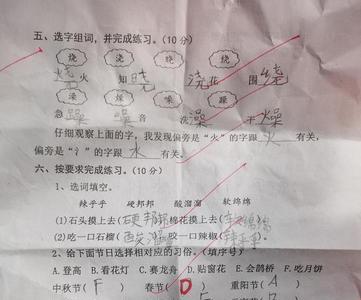 五、选字组词，并完成练习。(10分)
烧 浇 晓 绕
烧火 知晓 浇花 围绕
澡 燥 噪 躁
急躁 噪音 洗澡 干燥
仔细观察上面的字，我发现偏旁是“火”的字跟 火 有关，
偏旁是“氵”的字跟 水 有关。
六、按要求完成练习。(10分)
1、选词填空。
辣乎乎 硬邦邦 酸溜溜 软绵绵
(1)石头摸上去(硬邦邦)棉花摸上去(软绵绵
(2)吃一口石榴(酸溜溜)，咬一口辣椒(辣乎乎
2、给下面节日选择相对应的习俗。(填序号)
A.登高 B.看花灯 C.赛龙舟 D.贴窗花 E.会鹊桥 F.吃月饼
中秋节(F) 春节(D) 重阳节(A)